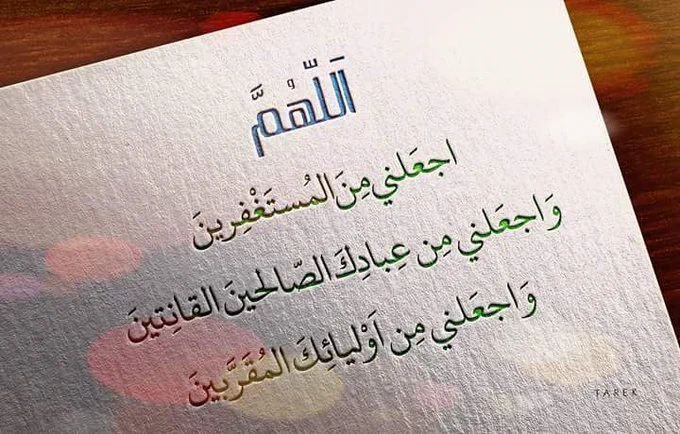 اَللّٰهُمَّ
اجعَلني مِنَ المُستَغْفِرينَ
وَاجعَلني مِن عِبادِكَ الصّالحينَ القانِتينَ
وَاجعَلني مِن اَوْليائِكَ المُقَرَّبينَ
TAREK